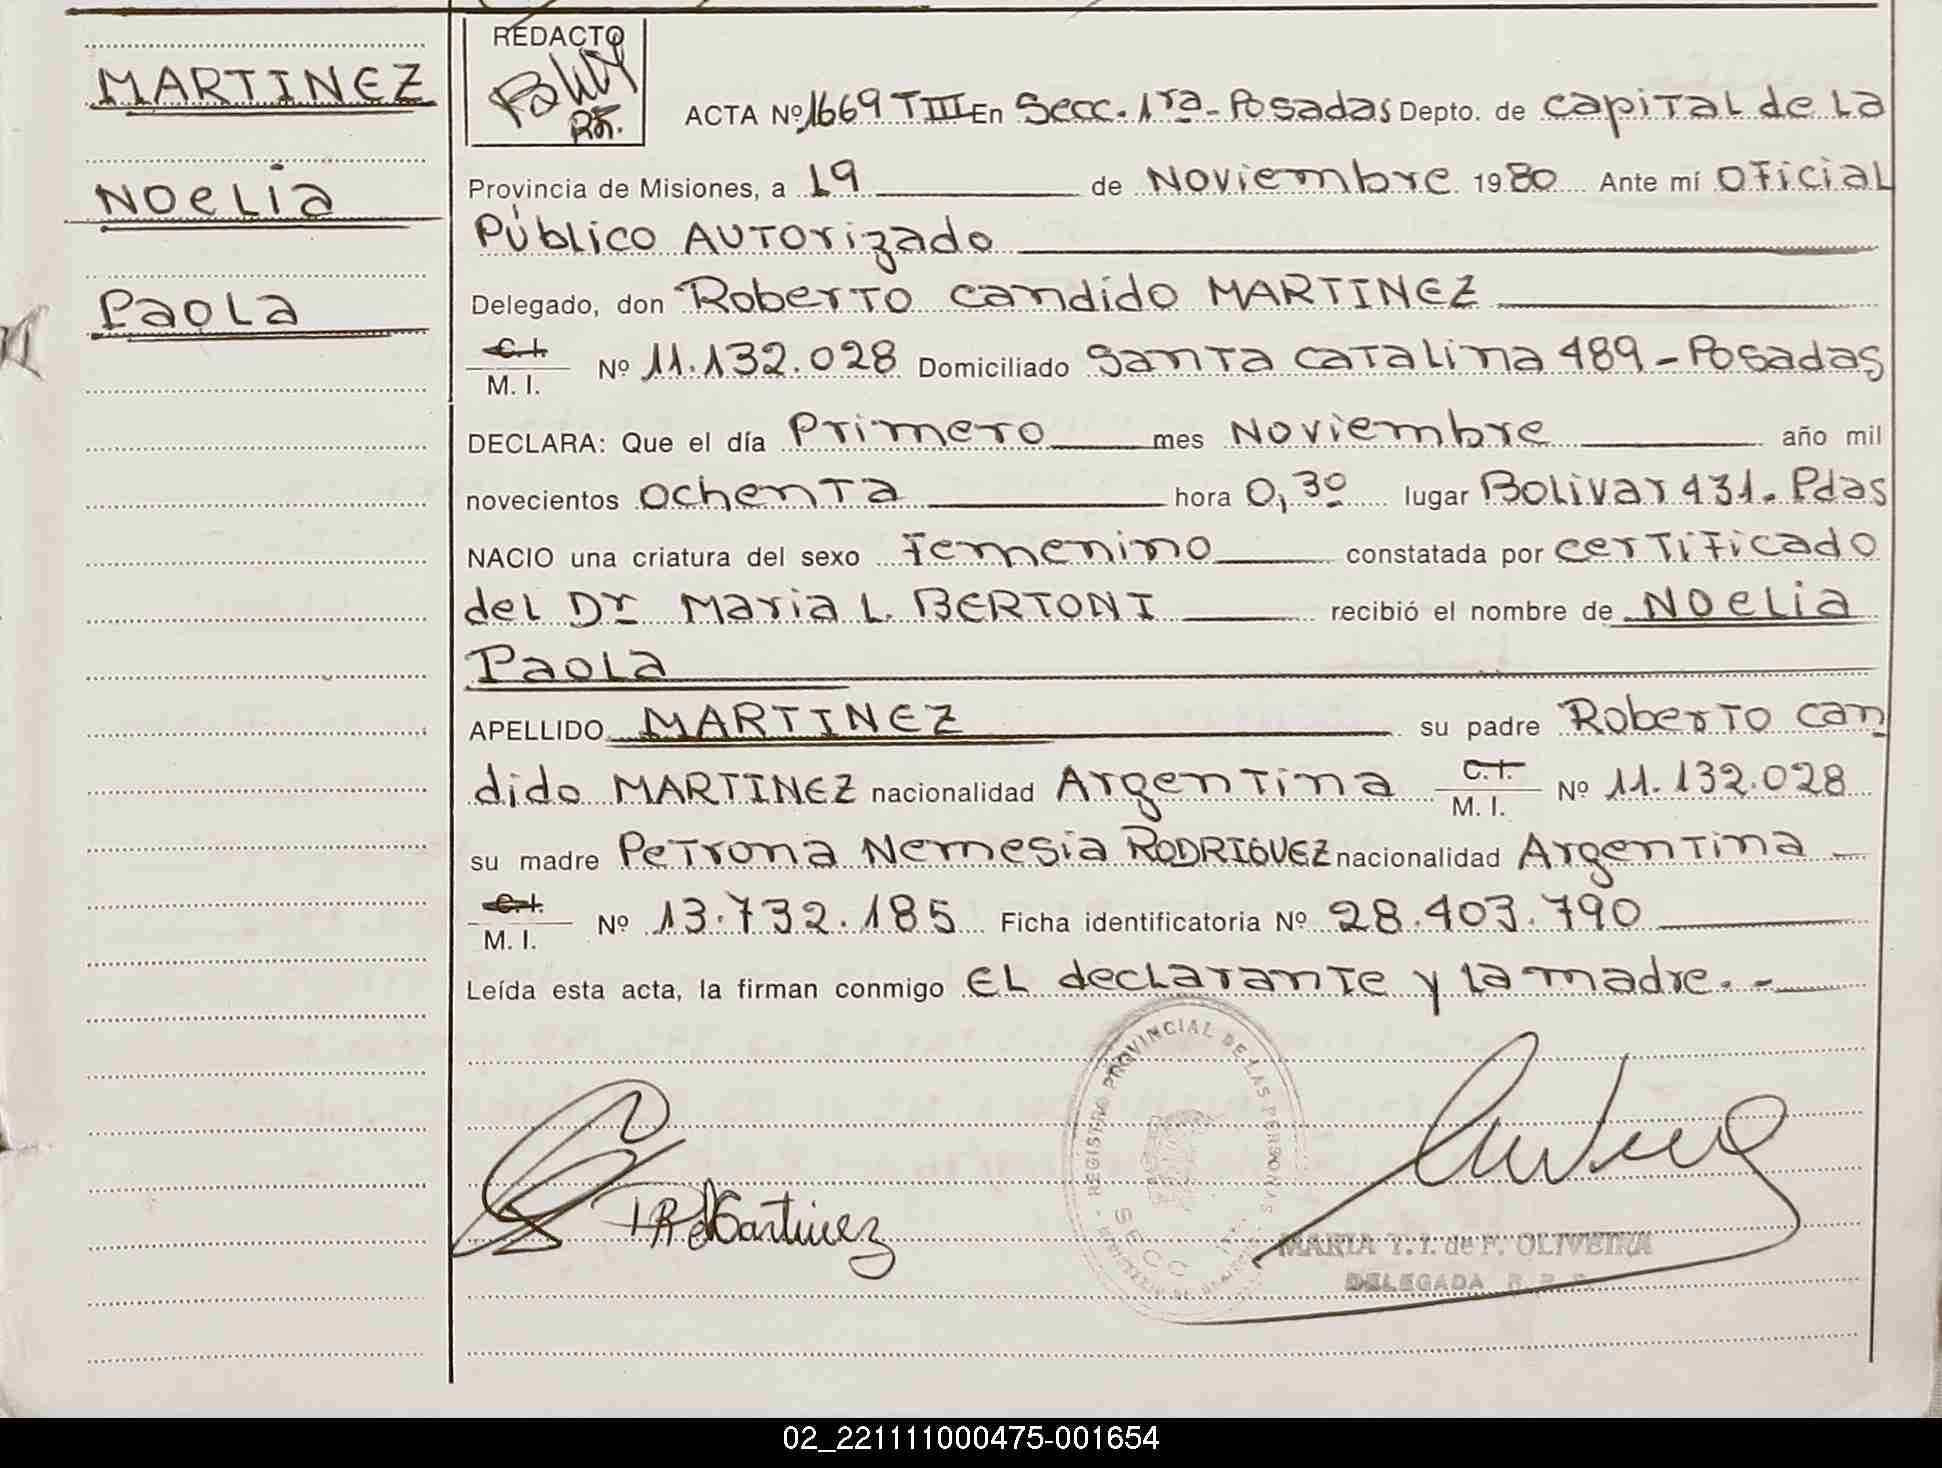 MARTINEZ
NOELIA
PAOLA
REDACTO
ACTA Nº 1669 TIII En Secc. 1ra - Posadas Depto. de Capital de La
Provincia de Misiones, a 19 de Noviembre 1980 Ante mí Oficial
Público Autorizado
Delegado, don Roberto Candido MARTINEZ
C.I.
M. I. Nº 11.132.028 Domiciliado Santa Catalina 489 - Posadas
DECLARA: Que el día Primero mes Noviembre año mil
novecientos ochenta hora 0,30 lugar Bolivar 431. Pdas
NACIO una criatura del sexo Femenino constatada por certificado
del Dr Maria L. BERTONI recibió el nombre de NOELIA
PAOLA
APELLIDO MARTINEZ su padre Roberto Can
dido MARTINEZ nacionalidad Argentina C.I. M. I. Nº 11.132.028
su madre Petrona Nemesia RODRIGUEZ nacionalidad Argentina
C.I.
M. I. Nº 13.732.185 Ficha identificatoria Nº 28.403.790
Leída esta acta, la firman conmigo EL declarante y la madre. -
REGISTRO PROVINCIAL DE LAS PERSONAS
SECC
MARIA T. I. de F. OLIVEIRA
DELEGADA R. P. P.
02_221111000475-001654